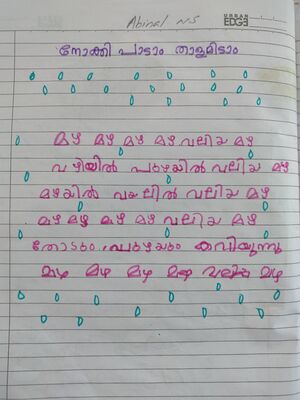 Abinal N.S
URBAN EDGE
നോക്കി പാടാം താളമിടാം
മഴ മഴ മഴ മഴ വലിയ മഴ
വഴിയിൽ പുഴയിൽ വലിയ മഴ
മഴയിൽ വയലിൽ വലിയ മഴ
മഴ മഴ മഴ മഴ വലിയ മഴ
തോടും പുഴയും കവിയുന്നു
മഴ മഴ മഴ മഴ വലിയ മഴ